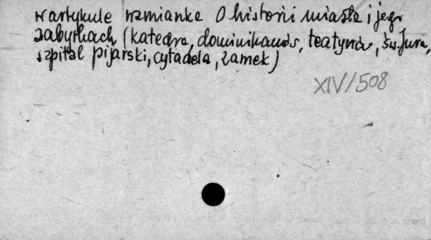 w artykule wzmianka o historii miasta i jego
zabytkach (katedra, dominikanów, teatynów, św. Jura,
szpital pijarski, cytadela, zamek)
XIV/508